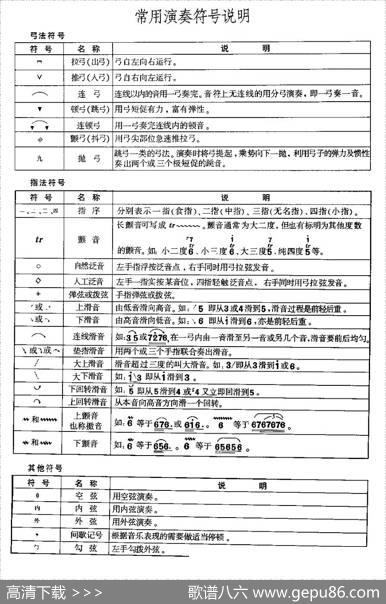 常用演奏符号说明
弓法符号
符号 名称 说明
拉弓(出弓) 弓自左向右运行。
∨ 推弓(入弓) 弓自右向左运行。
连弓 连线以内的音用一弓奏完。音符上无连线的用分弓演奏，即一弓奏一音。
▼ 顿弓(跳弓) 用弓短促有力，富有弹性。
连顿弓 用一弓奏完连线内的顿音。
颤弓(抖弓) 用弓尖部位急速推拉弓。
抛弓 跳弓一类的弓法。演奏时将弓提起，乘势向下一抛，利用弓子的弹力及惯性
奏出两个或三个极短促的跳音。
指法符号
符号 名称 说明
一、二、三、四 指序 分别表示一指(食指)、二指(中指)、三指(无名指)、四指(小指)。
tr 颤音 长颤音可写成 tr~~~~。颤音通常为大二度，但也有标明为其他度数
的颤音。如，小二度6、小三度6、大三度5、纯四度5等。
○ 自然泛音 左手指浮按泛音点，右手同时用弓拉弦发音。
◇ 人工泛音 左手一指实按某音位，四指轻触泛音点，右手同时用弓拉弦发音。
+ 弹弦或拨弦 手指弹弦或拨弦。
或 上滑音 由低音滑向高音。如：5 即从3或4滑到5，滑音过程是前轻后重。
或 下滑音 由高音滑向低音。如：6 即从i滑到6，亦是前轻后重。
连线滑音 如：3 5或7276，在一弓内由一音滑至另一音或另几个音，滑音要前后均匀。
或 或 垫指滑音 用两个或三个手指联合奏出滑音。
大上滑音 滑音超过三度的叫大滑音。如，3/即从3滑到i或6。
大下滑音 如：i\3 即从i滑到3。
下回转滑音 如：5 即从5滑到4 或#4 又立即回滑到5。
上回转滑音 从本音向高音方向滑一个回转。
和 上颤音
也称撤音 如：6 等于676. 或 616.。6 等于6767676。
和 下颤音 如：6 等于656.。6 等于65656。
其他符号
符号 名称 说明
0 空弦 用空弦演奏。
内 内弦 用内弦演奏。
外 外弦 用外弦演奏。
间歇记号 根据音乐表现的需要做适当停顿。
勹 勾弦 左手勾拨外弦。
高清下载 >>> 歌谱八六 www.gepu86.com